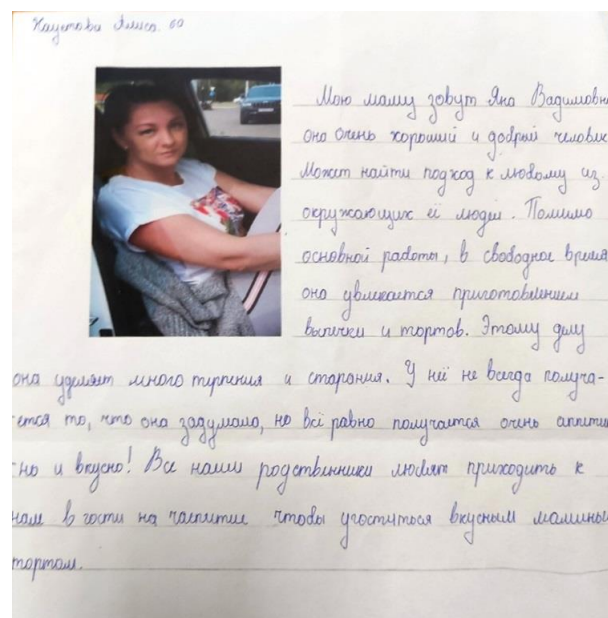 Хаустова Алиса. 6в
Мою маму зовут Яна Вадимовна
она очень хороший и добрый человек
Может найти подход к любому из
окружающих её людей. Помимо
основной работы, в свободное время
она увлекается приготовлением
выпички и тортов. Этому делу
она уделяет много терпения и старания. У неё не всегда получа-
ется то, что она задумала, но всё равно получается очень аппетит
но и вкусно! Все наши родственники любят приходить к
нам в гости на чаепитие чтобы угоститься вкусным маминым
тортом.